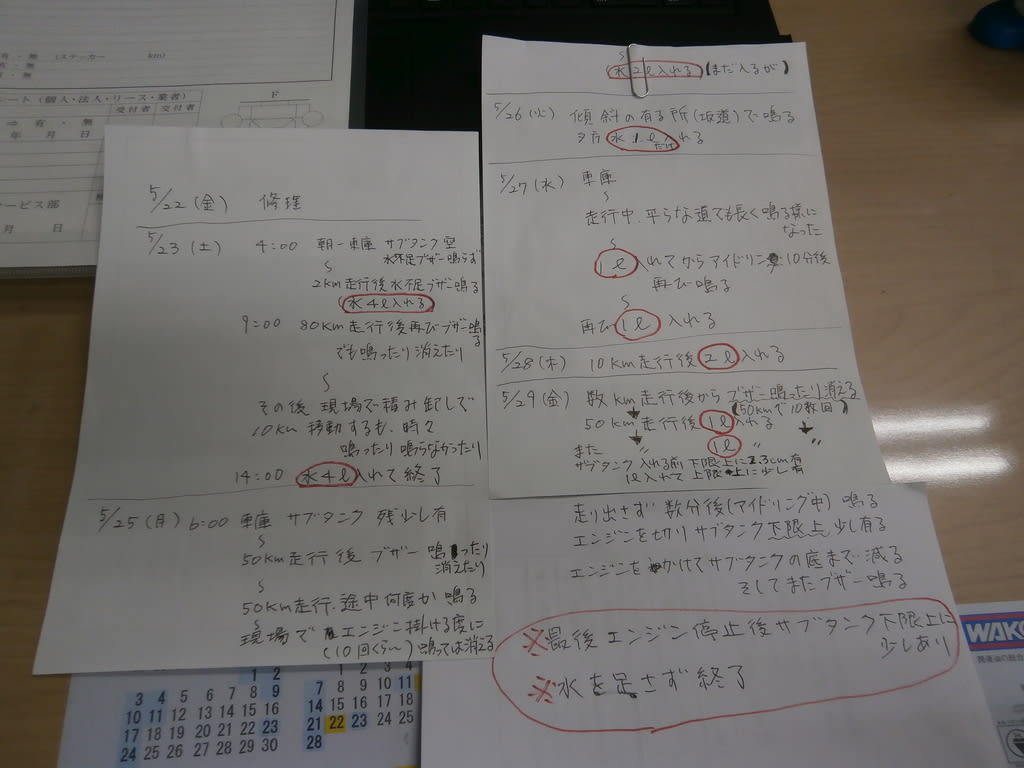 有・無 (ステッカー km)
有・無
シート (個人・法人・リース・業者)
受付者 交付者
⇒ 有 ・ 無
年 月 日
サービス部
月 日
F
5/22 (金) 修理
5/23 (土) 4:00 朝一車庫 サブタンク空
水不足ブザー鳴らず
2km走行後水不足ブザー鳴る
水4ℓ入れる
9:00 80km走行後再びブザー鳴る
でも鳴ったり消えたり
その後 現場で積み卸しで
10km 移動するも、時々
鳴ったり鳴らなかったり
14:00 水4ℓ入れて終了
5/25 (月) 6:00 車庫 サブタンク 残少し有
50km走行後 ブザー 鳴ったり
消えたり
50km走行、途中何度か鳴る
現場で エンジン掛ける度に
(10回くらい) 鳴っては消える
水2ℓ入れる (まだ入るが)
5/26 (火) 傾斜の有る所(坂道)で鳴る
夕方 水1ℓだけ入れる
5/27 (水) 車庫
走行中、平らな道でも長く鳴る様に
なった
1ℓ入れてからアイドリング10分後
再び鳴る
再び1ℓ入れる
5/28 (木) 10km走行後2ℓ入れる
5/29 (金) 数km走行後からブザー鳴ったり消える
(50kmで10数回)
50km走行後1ℓ入れる
また 〃 1ℓ 〃 〃
サブタンク入れる前下限上に2.3cm有
1ℓ入れて上限上に少し有
走り出さず 数分後(アイドリング中) 鳴る
エンジンを切りサブタンク下限上少し有る
エンジンをかけてサブタンクの底まで減る
そしてまたブザー鳴る
※最後エンジン停止後サブタンク下限上に
少しあり
※水を足さず終了
WAKO
1 2
3 4 5 6 7 8 9
10 11 12 13 14 15 16
17 18 19 20 21 22 23
24 25 26 27 28 29 30
1 2 3 4
7 8 9 10 11
14 15 16 17 18
21 22 23 24 25
28